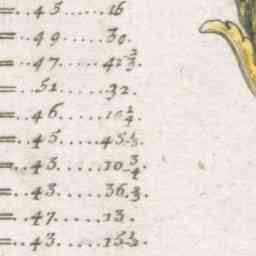 =..45.....16
=..49.....30.
=..47.....42 2/3.
=..51.....32.
=..46.....10 1/4.
=..45.....45 1/2.
=..43.....10 3/4.
=..43.....36 3/4.
=..47.....13.
=..43.....15 1/2.